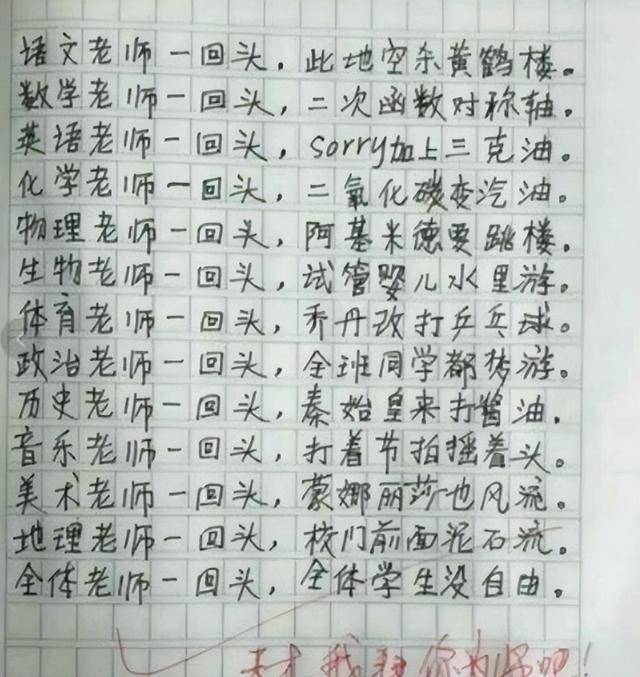 语文老师一回头，此地空余黄鹤楼。
数学老师一回头，二次函数对称轴。
英语老师一回头，sorry加上三克油。
化学老师一回头，二氧化碳变汽油。
物理老师一回头，阿基米德要跳楼。
生物老师一回头，试管婴儿水里游。
体育老师一回头，乔丹改打乒乓球。
政治老师一回头，全班同学都梦游。
历史老师一回头，秦始皇来打酱油．
音乐老师一回头，打着节拍摇着头。
美术老师一回头，蒙娜丽莎也风流。
地理老师一回头，校门前面泥石流。
全体老师一回头，全体学生没自由。
天才，我拜你为师吧！